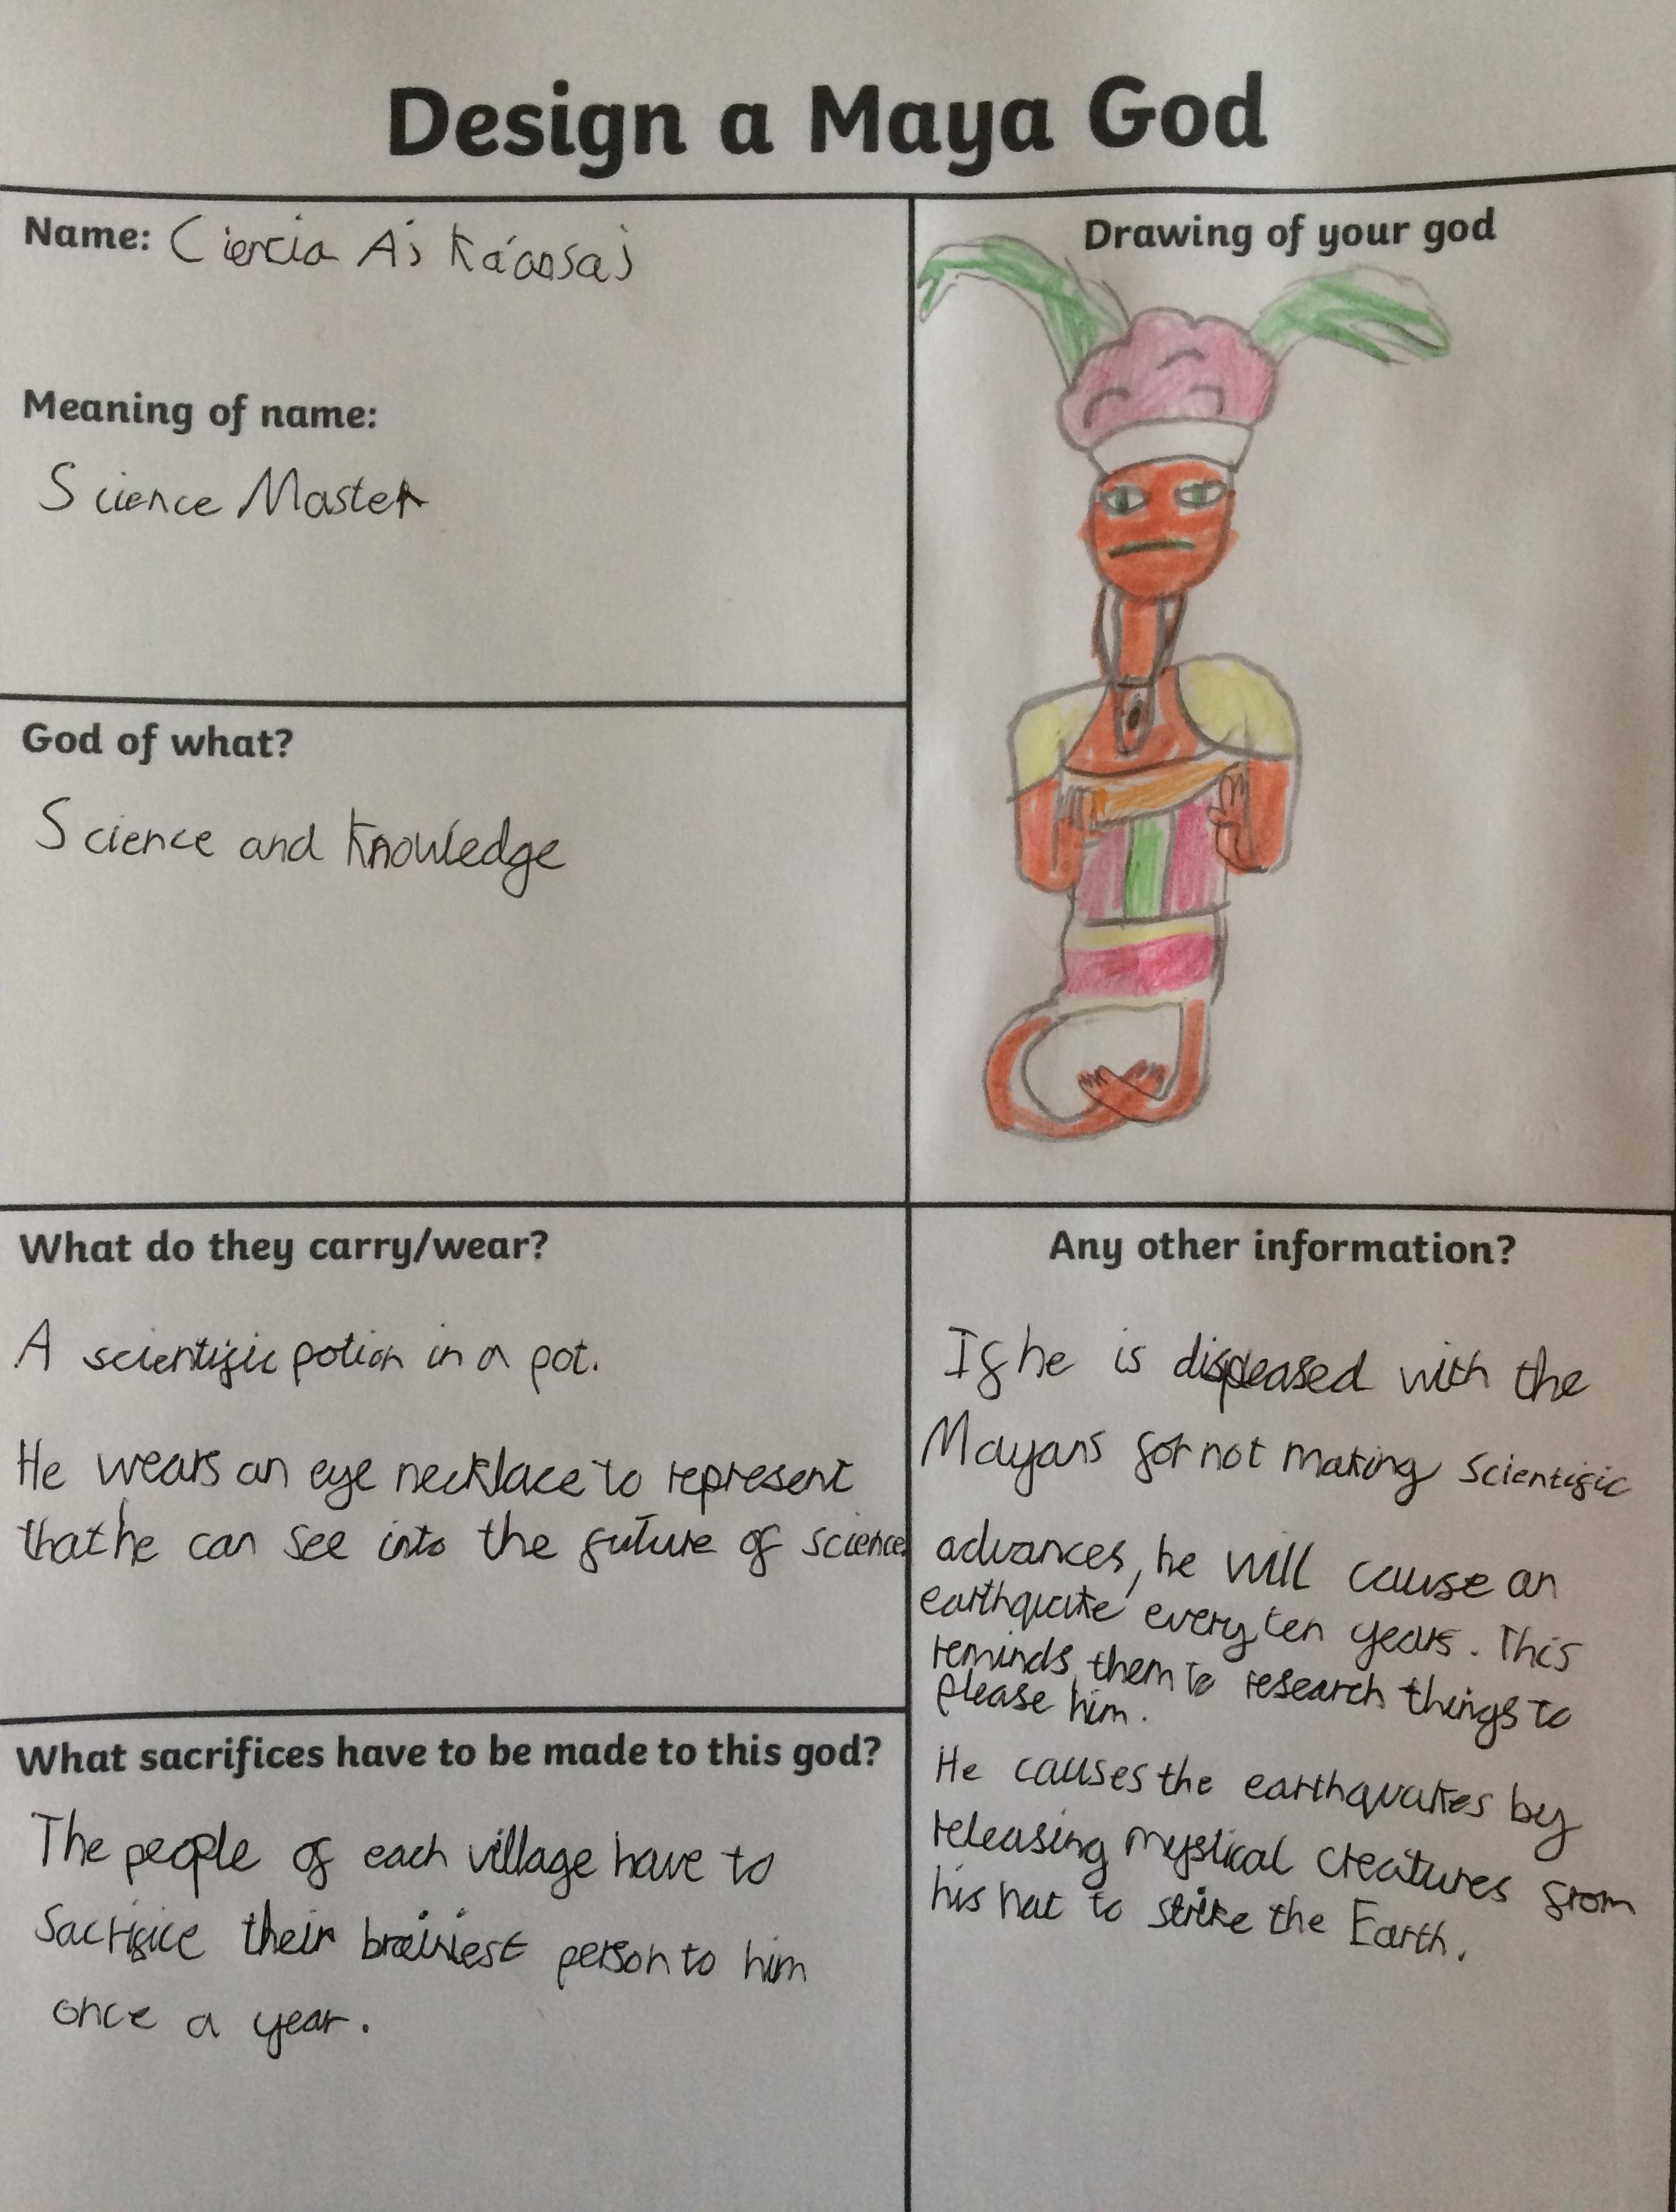 Design a Maya God
Name: Ciencia Aj Ka'ansaj
Meaning of name:
Science Master
God of what?
Science and Knowledge
Drawing of your god
What do they carry/wear?
A scientific potion in a pot.
He wears an eye necklace to represent
that he can see into the future of science.
What sacrifices have to be made to this god?
The people of each village have to
Sacrifice their brainiest person to him
once a year.
Any other information?
If he is displeased with the
Mayans for not making scientific
advances, he will cause an
earthquake every ten years. This
reminds them to research things to
please him.
He causes the earthquakes by
releasing mystical creatures from
his hat to strike the Earth.